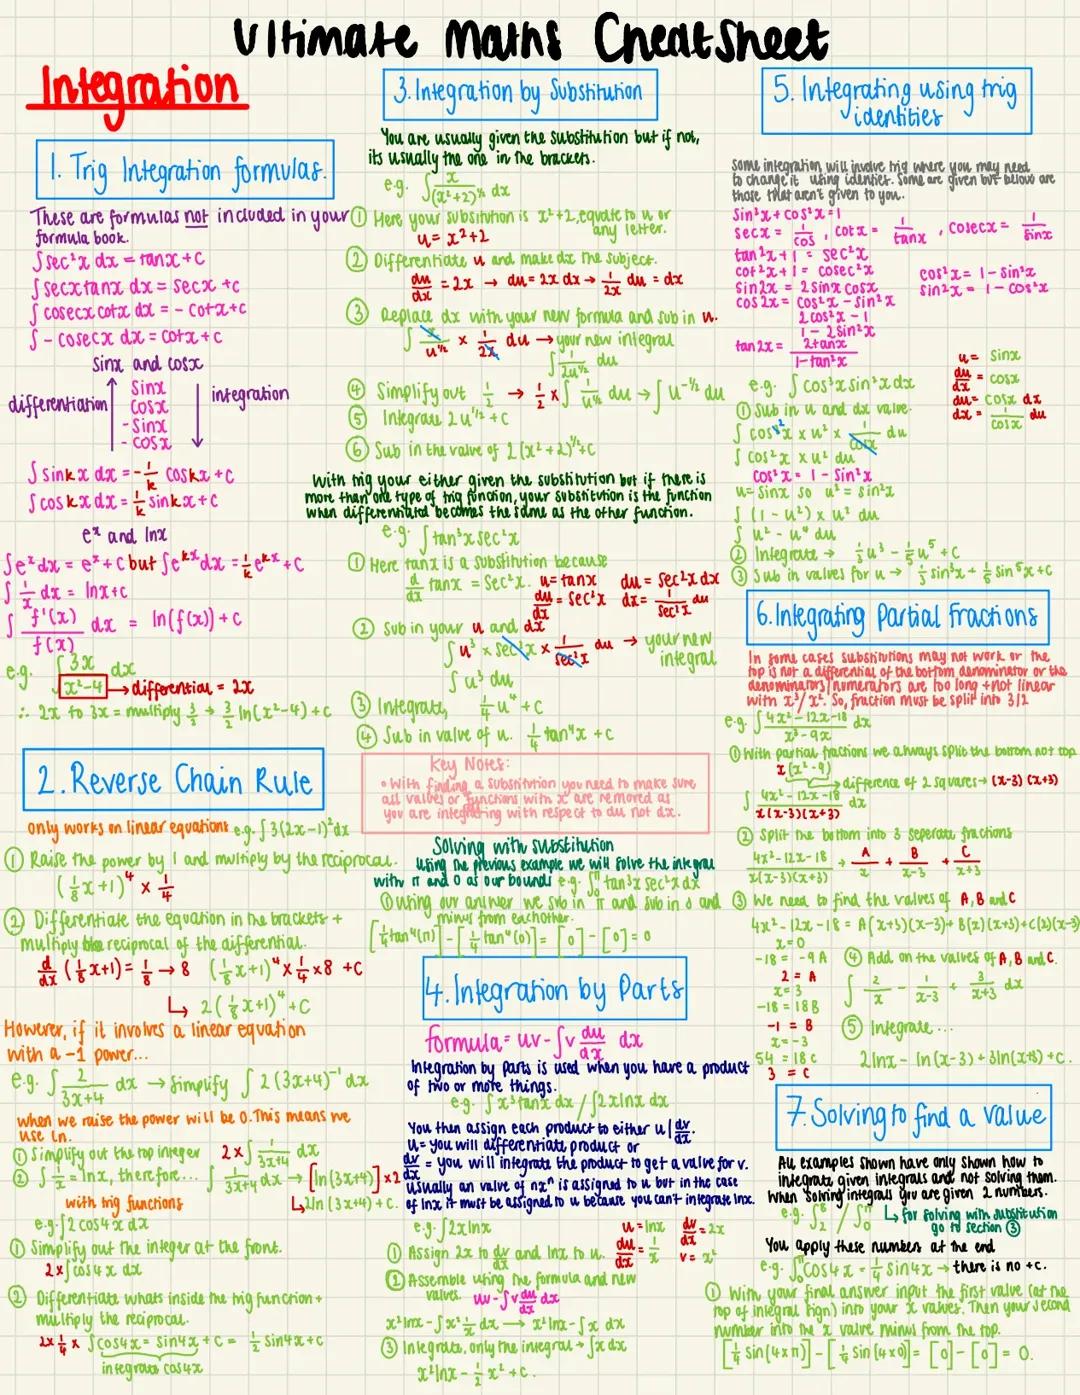 Ultimate Maths CheatSheet
Integration
1. Trig Integration formulas.
These are formulas not included in your formula book.
∫sec²x dx = tanx+C
∫secxtanx dx = secx +c
∫cosecxcotx dx = - cotx+c
∫- cosecx dx = cotx+c
Sinx and cosx
differentiation
Sinx
Cosx
-Sinx
-Cosx
integration
∫sinkx dx = -1/k coskx + c
∫coskxdx = 1/k sinkx+c
eˣ and lnx
∫eˣdx = eˣ+C but ∫eᵏˣdx = 1/k eᵏˣ+C
∫1/x dx = lnx+c
∫f'(x)/f(x) dx = ln(f(x))+c
e.g. ∫3x/x²-4 dx
→ differential = 2x
∴ 2x to 3x = multiply 3/2 → 3/2 ln(x²-4)+c
2. Reverse Chain Rule
only works on linear equations e.g. ∫3(2x-1)²dx
① Raise the power by 1 and multiply by the reciprocal.
(1/8x+1)⁴ × 1/4
② Differentiate the equation in the brackets +
multiply the reciprocal of the differential.
d/dx (1/8x+1) = 1/8 → 8 (1/8x+1)⁴ × 1/4 × 8 +C
↳ 2(1/8x+1)⁴+C
However, if it involves a linear equation
with a -1 power...
e.g. ∫2/3x+4 dx → simplify ∫2(3x+4)⁻¹dx
when we raise the power will be 0. This means we
use ln.
① Simplify out the top integer 2×∫1/3x+4 dx
② ∫1/x = lnx, therefore... ∫1/3x+4 dx → [ln(3x+4)]×2
↳ 2ln(3x+4)+c.
with trig functions
e.g. ∫2cos4x dx
① Simplify out the integer at the front.
2×∫cos4x dx
② Differentiate whats inside the trig function +
multiply the reciprocal.
2×1/4 × ∫cos4x = sin4x + C = 1/2 sin4x+c
integrates cos4x
3. Integration by Substitution
You are usually given the substitution but if not,
its usually the one in the brackets.
e.g. ∫x/(x²+2)^½ dx
① Here your substitution is x²+2, equate to u or
any letter.
u= x²+2
② Differentiate u and make dx the subject.
du/dx = 2x → du = 2x dx → 1/2x du = dx
③ Replace dx with your new formula and sub in u.
∫x/u^½ × 1/2x du → your new integral
∫1/2u^½ du
④ Simplify out 1/2 → 1/2 × ∫1/u^½ du → ∫u^-½ du
⑤ Integrate 2u^½ + C
⑥ Sub in the value of 2(x²+2)^½+C
With trig your either given the substitution but if there is
more than one type of trig function, your substitution is the function
when differentiated becomes the same as the other function.
e.g. ∫tan³xsec²x
① Here tanx is a substitution because
d/dx tanx = Sec²x. u=tanx du = sec²x dx
du/dx = sec²x dx= 1/sec²x du
② Sub in your u and dx
∫u³ × sec²x × 1/sec²x du → your new
integral
∫u³ du
③ Integrate, 1/4u⁴ + C
④ Sub in value of u. 1/4tan⁴x +c
Key Notes:
• With finding a substitution you need to make sure
all values or functions with x are removed as
you are integrating with respect to du not dx.
Solving with substitution
Using the previous example we will solve the integral
with π and 0 as our bounds e.g. ∫₀^π tan³x sec²x dx
① Using our answer we sub in π and sub in 0 and
minus from eachother.
[1/4tan⁴(π)] - [1/4tan⁴(0)] = [0] - [0] = 0
4. Integration by Parts
formula= uv-∫v du/dx dx
Integration by parts is used when you have a product
of two or more things.
e.g. ∫x³tanx dx / ∫2xlnx dx
You then assign each product to either u | dv/dx.
u= you will differentiate product or
dv/dx = you will integrate the product to get a value for v.
usually an value of nxⁿ is assigned to u but in the case
of lnx it must be assigned to u because you cant integrate lnx.
e.g. ∫2xlnx
u=lnx dv/dx = 2x
du/dx = 1/x v= x²
① Assign 2x to dv/dx and lnx to u.
② Assemble using the formula and new
values. uv-∫v du/dx dx
x²lnx-∫x² 1/x dx → x²lnx-∫x dx
③ Integrate, only the integral → ∫x dx
x²lnx - 1/2x² + c.
5. Integrating using trig
identities
Some integration will involve trig where you may need
to change it using identies. Some are given but below are
those that aren't given to you.
Sin²x + cos²x = 1
secx = 1/cos, cotx = 1/tanx, cosecx = 1/sinx
tan²x+1 = sec²x
cot²x+1 = cosec²x
sin2x = 2sinxcosx
cos2x = cos²x - sin²x
2cos²x - 1
1 - 2sin²x
cos²x = 1-sin²x
sin²x = 1-cos²x
tan2x = 2tanx/1-tan²x
e.g. ∫cos³xsin²xdx
u= sinx
du/dx = cosx
du= cosx dx
dx = 1/cosx du
① Sub in u and dx value.
∫cos³x × u² × 1/cosx du
∫cos²x × u² du
cos²x = 1 - sin²x
u= sinx so u² = sin²x
∫(1-u²) × u² du
∫u² - u⁴ du
② Integrate → 1/3u³ - 1/5u⁵ + C
③ Sub in values for u → 1/3sin³x + 1/5sin⁵x+C
6. Integrating Partial Fractions
In some cases substitutions may not work or the
top is not a differential of the bottom denominator or the
denominators/numerators are too long + not linear
with x³/x². So, fraction must be split into 3/2
e.g. ∫4x²-12x-18/x³-9x dx
① With partial fractions we always split the bottom not top
x(x²-9)
→ difference of 2 squares → (x-3)(x+3)
∫4x²-12x-18/x(x-3)(x+3) dx
② Split the bottom into 3 seperate fractions
4x²-12x-18/x(x-3)(x+3) → A/x + B/x-3 + C/x+3
③ We need to find the values of A, B and C
4x²-12x-18 = A(x+3)(x-3)+B(x)(x+3)+c(x)(x-3)
x=0
-18 = -9A
2 = A
x=3
-18 = 18B
-1 = B
x=-3
54 = 18c
3 = C
④ Add on the values of A, B and C.
∫2/x - 1/x-3 + 3/x+3 dx
⑤ Integrate...
2lnx - ln(x-3)+3ln(x+3)+c.
7. Solving to find a value
All examples shown have only shown how to
integrate given integrals and not solving them.
When solving integrals you are given 2 numbers.
e.g. ∫₂⁸ / ∫₀^π ↳ for solving with substitution
go to section ③
You apply these numbers at the end
e.g. ∫₀^π cos4x = 1/4 sin4x → there is no +c.
① With your final answer input the first value (at the
top of integral sign) into your x values. Then your second
number into the x value minus from the top.
[1/4 sin(4×π)] - [1/4 sin(4×0)] = [0] - [0] = 0.